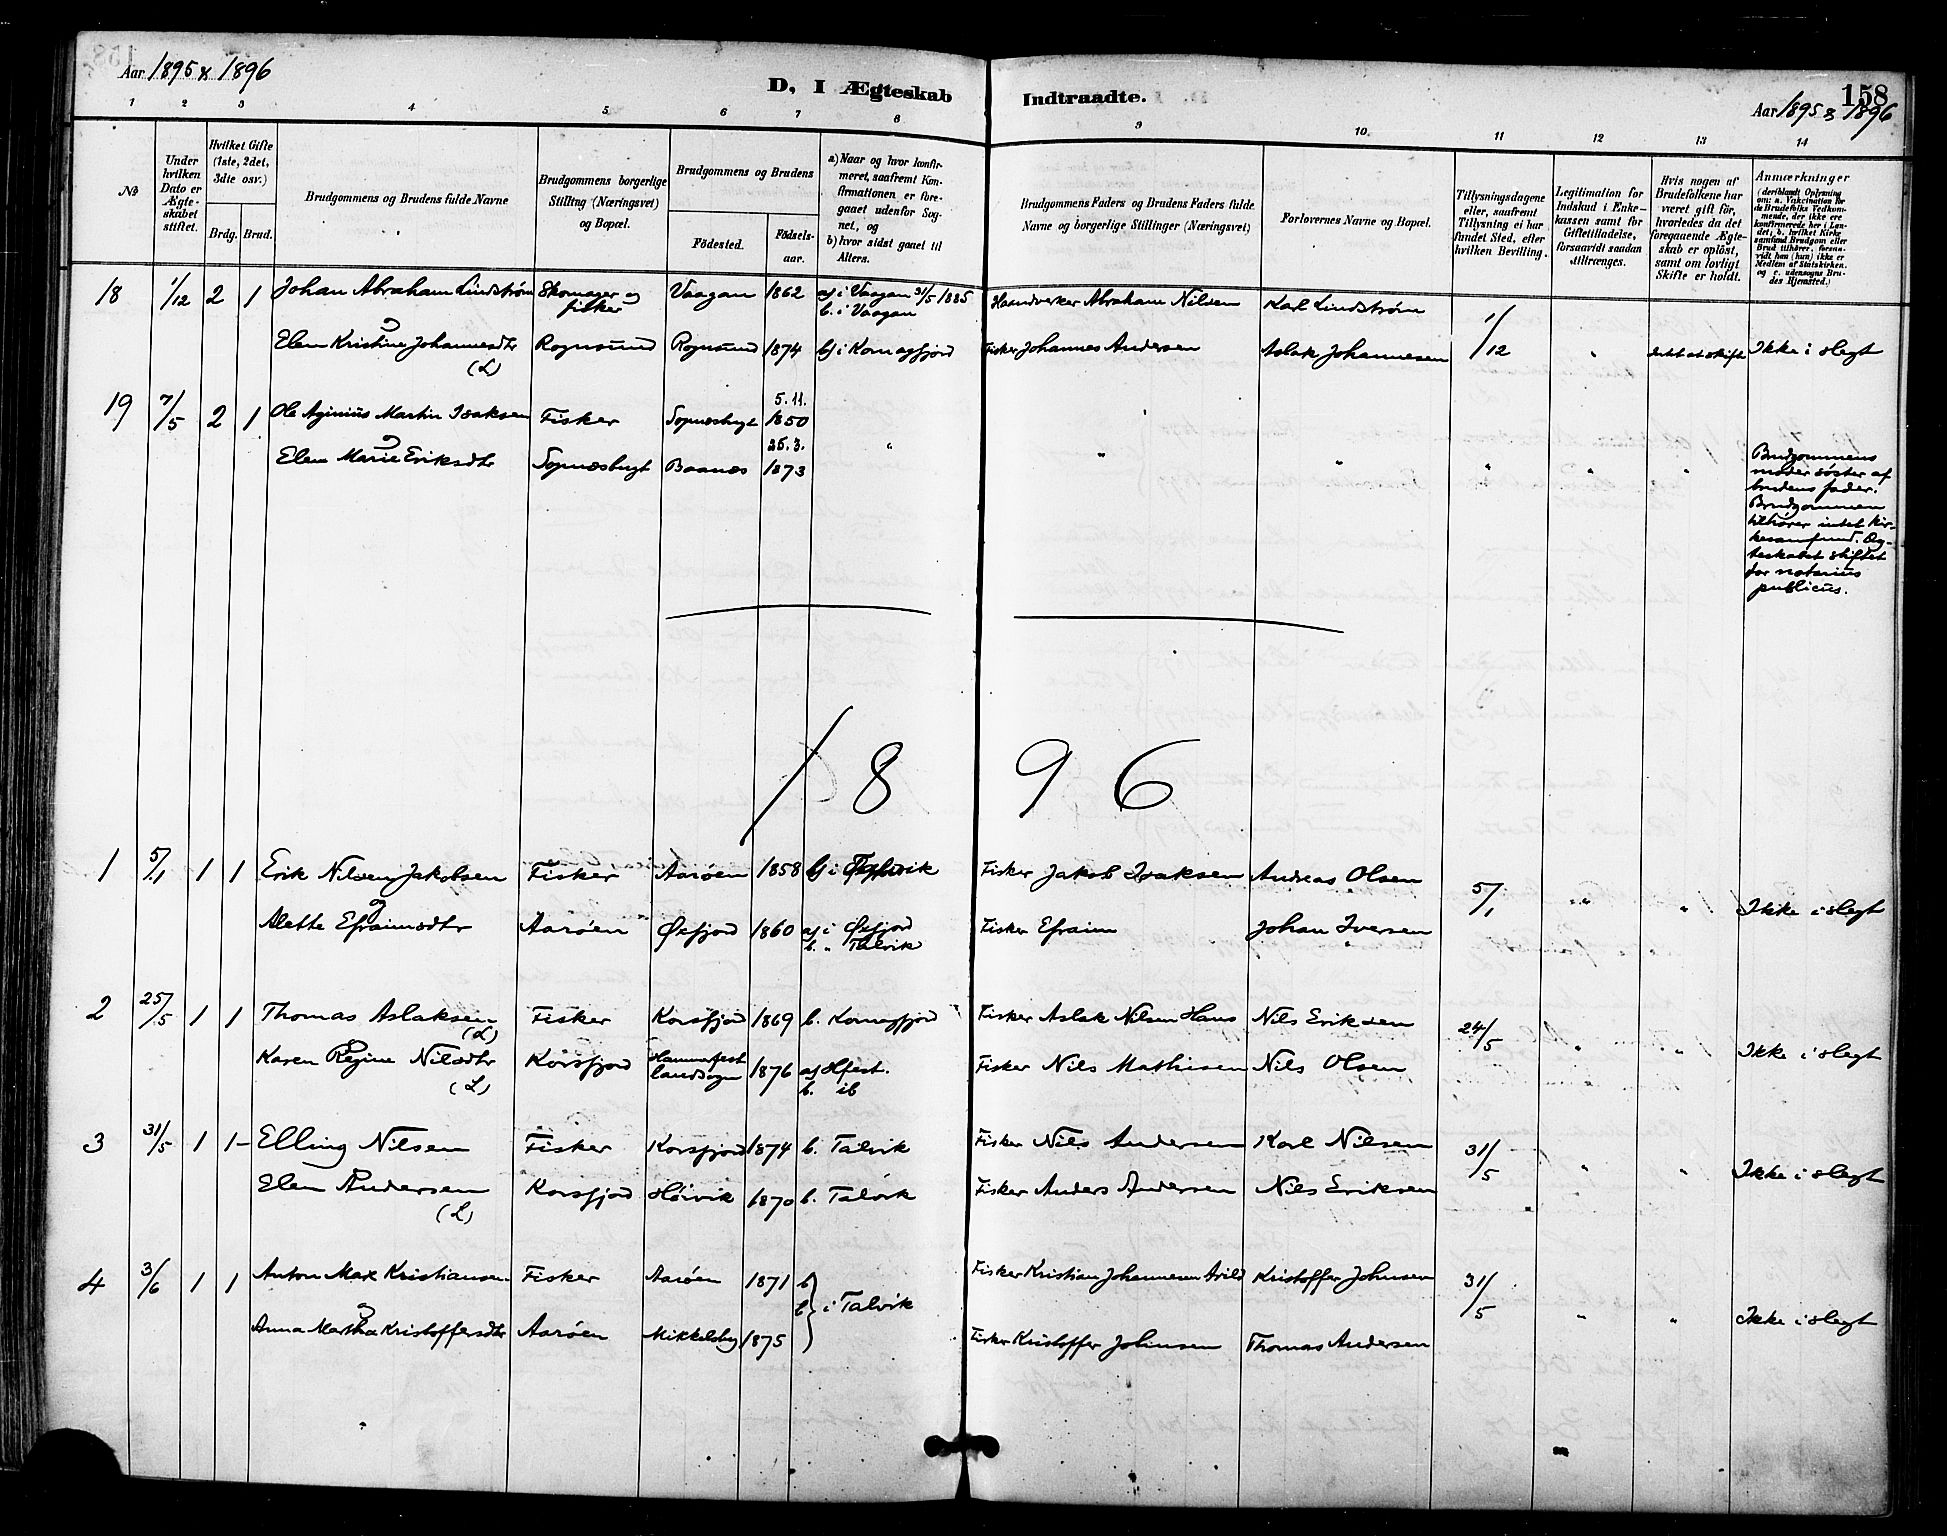 Aar 1895 & 1896
D, I Ægteskab Indtraadte.
158
Aar 1895 & 1896
1 2 3 4 5 6 7 8 9 10 11 12 13 14
No
Under hvilken Dato er Ægteskabet stiftet.
Hvilket Gifte (1ste, 2det, 3die osv.)
Brdg. Brud.
Brudgommens og Brudens fulde Navne
Brudgommens borgerlige Stilling (Næringsvei) og Bopæl.
Brudgommens og Brudens
Födested. Födselsaar.
a) Naar og hvor konfirmeret, saafremt Konfirmationen er foregaaet udenfor Sognet, og
b) hvor sidst gaaet til Alters.
Brudgommens Faders og Brudens Faders fulde Navne og borgerlige Stillinger (Næringsvei)
Forlovernes Navne og Bopæl.
Tillysningsdagene eller, saafremt Tillysning ei har fundet Sted, efter hvilken Bevilling.
Legitimation for Indskud i Enkekassen samt for Giftetilladelse, forsaavidt saadan tiltrænges.
Hvis nogen af Brudefolkene har været gift för, hvorledes da det foregaaende Ægteskab er oplöst, samt om lovligt Skifte er holdt.
Anmærkninger
(deriblandt Oplysning om: a. Vakcination for de Brudefolks Vedkommende, der ikke ere konfirmerede her i Landet; b. hvilket Kirkesamfund Brudgom eller Brud tilhörer, forsaavidt han (hun) ikke er Medlem af Statskirken, og c. udensogns Brudes Hjemsted.)
18 1/12 2 1 Johan Abraham Lindstrøm Skomager og fisker Vaagan 1862 a) i Vaagan 31/5 1885 b. i Vaagan Haandverker Abraham Nilsen Karl Lindstrøm 1/12
Elen Kristine Johannesdtr (L) Rognsund Rognsund 1874 b) i Komagfjord Fisker Johannes Andersen Aslak Johannesen " Ikke i slegt
19 7/5 2 1 Ole Martin Isaksen Fisker Sopnesbugt 5.11. 1850
Elen Marie Eriksdtr Sopnesbugt Baanes 25.3. 1873 " " " " " "
Brudgommens
moder søster af
brudens fader.
Brudgommen
tilhører intet kir-
kesamfund. Æg-
teskabet stiftet
for notarius
publicus.
1896
1 5/1 1 1 Erik Nilsen Jakobsen Fisker Aarøen 1858 b) i Fisker Jakob Isaksen Andreas Olsen 5/1
Alette Efraimsdtr Aarøen Øxfjord 1860 a) i Øxfjord b. " Talvik Fisker Efraim Johan Iversen " " Ikke i slegt
2 25/5 1 1 Thomas Aslaksen (L) Fisker Korsfjord 1869 b. Komagfjord Fisker Aslak Nilsen Hans Nils Eriksen 24/5
Karen Regine Nilsdtr (L) Korsfjord Hammerfest landsogn 1876 a) Hfest. b. ib Fisker Nils Mathisen Nils Olsen " " Ikke i slegt
3 31/5 1 1 Elling Nilsen Fisker Korsfjord 1874 b. Talvik Fisker Nils Andersen Karl Nilsen 31/5
Elen Andersen (L) Korsfjord Høivik 1870 b. Talvik Fisker Anders Andersen Nils Eriksen " " Ikke i slegt
4 3/6 1 1 Anton Max Kristiansen Fisker Aarøen 1871 b Fisker Kristian Johannesen Arild Kristoffer Johnsen 31/5
b } i Talvik
Anna Martha Kristoffersdtr Aarøen Mikkelsby 1875 Fisker Kristoffer Johnsen Thomas Andersen " " Ikke i slegt